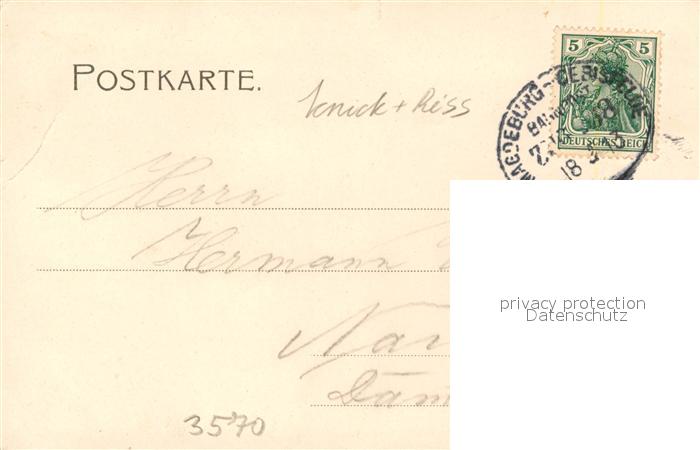 POSTKARTE.
Knick + Riss
5 5
DEUTSCHES REICH
MAGDEBURG
BAHNPOST
18
Herrn
Hermann
privacy protection
Datenschutz
3570